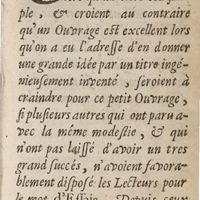 ple, & croient au contraire
qu'un Ouvrage est excellent lors
qu'on a eu l'adresse d'en donner
une grande idée par un titre ingé-
nieusement inventé, seroient à
craindre pour ce petit Ouvrage,
si plusieurs autres qui ont paru a-
vec la même modestie, & qui
n'ont pas laissé d'avoir un tres
grand succés, n'avoient favora-
blement disposé les Lecteurs pour
le mot d'Essais. Depuis ceux